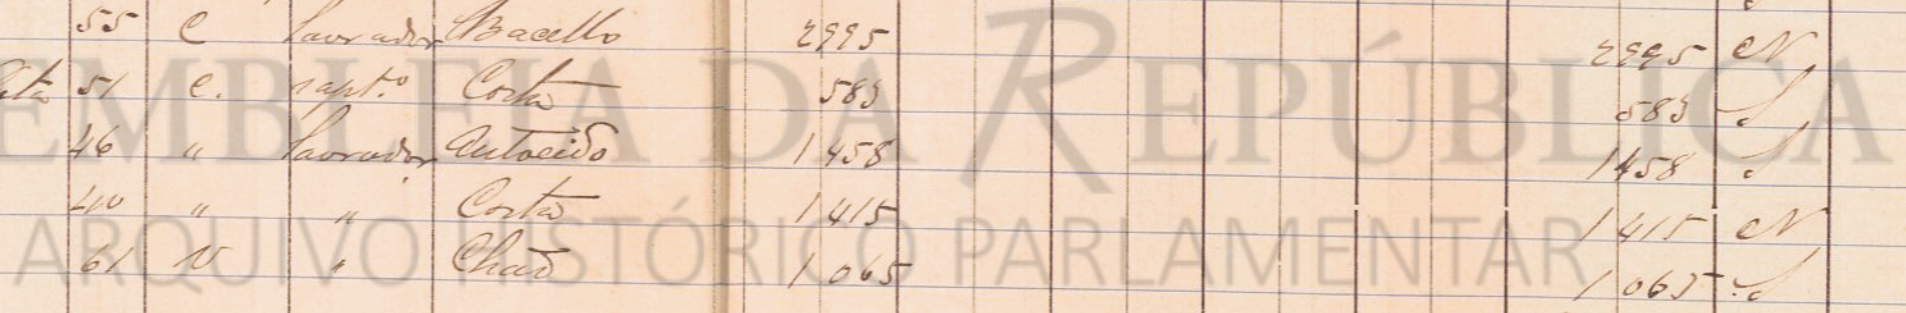 55 C lavrador Bacello 2995 2995 N
51 C. sapt.º Costa 583 583 S
46 " lavrador Outoeiro 1458 1458 S
40 " " Costa 1415 1415 N
61 V " Chão 1065 1065 S
ASSEMBLEIA DA REPÚBLICA
ARQUIVO HISTÓRICO PARLAMENTAR